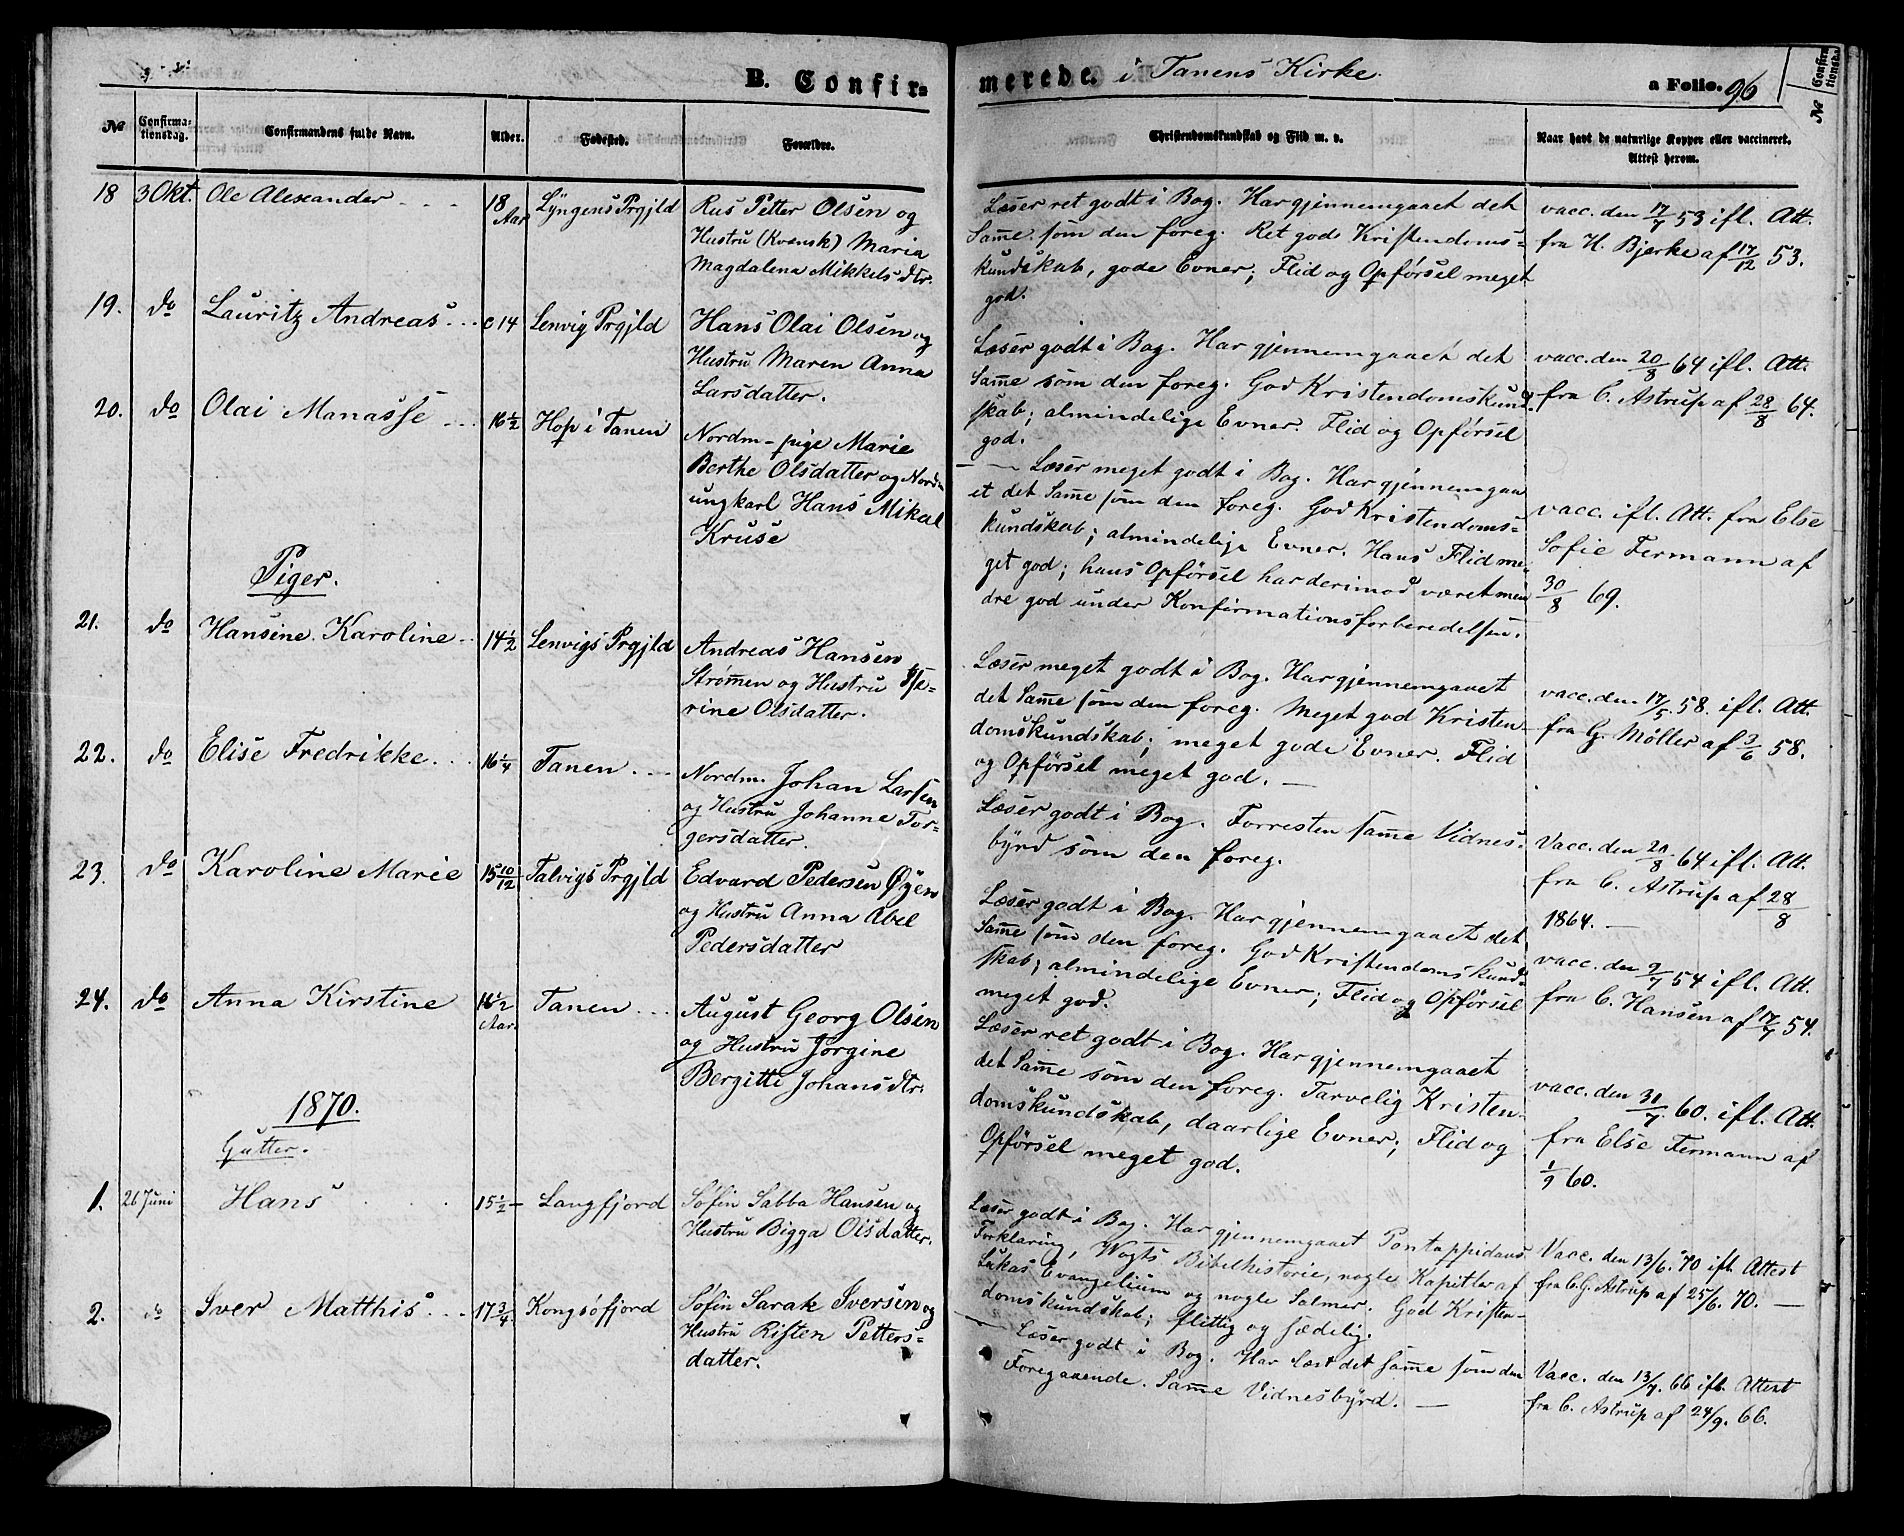 B. Confir=
merede. i Tanens Kirke.
a Folio. 96
No
Confirma-
tionsdag.
Confirmandens fulde Navn.
Alder.
Fødested.
Forældre.
Christendomskundskab og Flid m. v.
Naar havt de naturlige Kopper eller vaccineret.
Attest herom.
No
Confirma-
tionsdag
18 3 Okt. Ole Alexander 18 Aar Lyngens Prgjld
Rus Petter Olsen og
Hustru (Kvænsk) Maria
Magdalena Mikkelsdtr.
Læser ret godt i Bog. Har gjennemgaaet det
Samme som den foreg. Ret god Kristendoms-
kundskab, gode Evner; Flid og Opførsel meget
god.
vacc. den 17/7 53 ifl. Att.
fra H. Bjerke af 17/12 53.
19. do Lauritz Andreas c 14 Lenvig Prgjld
Hans Olai Olsen og
Hustru Maren Anna
Larsdatter.
Læser godt i Bog. Har gjennemgaaet det
Samme som den foreg. God Kristendomskund-
skab; almindelige Evner. Flid og Opførsel
god.
vacc. den 20/8 64 ifl. Att.
fra C. Astrup af 28/8 64.
20. do Olai Manasse 16 1/2 Hop i Tanen
Nordm-pige Marie
Berthe Olsdatter og Nordm-
ungkarl Hans Mikal
Kruse
— Læser meget godt i Bog. Har gjennemgaa
et det Samme som den foreg. God Kristendoms-
kundskab; almindelige Evner. Hans Flid me-
get god; hans Opførsel har derimod været min
dre god under Konfirmationsforberedelsen.
vacc. ifl. Att. fra Else
Sofie Fermann af
30/8 69.
Piger.
21. do Hansine Karoline 14 1/2 Lenvigs Prgjld
Andreas Hansen
Strømen og Hustru
rine Olsdatter.
Læser meget godt i Bog. Har gjennemgaaet
det Samme som den foreg. Meget god Kristen-
domskundskab; meget gode Evner. Flid
og Opførsel meget god. —
vacc. den 17/5. 58. ifl. Att.
fra G. Møller af 3/6 58.
22. do Elise Fredrikke 16 1/4 Tanen
Nordm. Johan Larsen
og Hustru Johanne Tor-
gersdatter.
Læser godt i Bog. Forresten samme Vidnes-
byrd som den foreg.
Vacc. den 20/8 64 ifl. Att.
fra C. Astrup af 28/8
1864. —
23. do Karoline Marie 15 10/12 Talvigs Prgjld
Edvard Pedersen Øyen
og Hustru Anna Abel
Pedersdatter
Læser godt i Bog. Har gjennemgaaet det
Samme som den foreg. God Kristendomskund-
skab; almindelige Evner; Flid og Opførsel
meget god.
vacc. den 9/7 54 ifl. Att.
fra C. Hansen af 17/7 54.
24. do Anna Kirstine 16 1/2 Aar. Tanen
August Georg Olsen
og Hustru Jørgine
Bergitte Johansdtr.
Læser ret godt i Bog. Har gjennemgaaet
det Samme som den foreg. Tarvelig Kristen-
domskundskab, daarlige Evner; Flid og
Opførsel meget god.
vacc. den 31/7. 60. ifl. Att.
fra Else Fermann af
1/9 60.
1870.
Gutter.
1. 26 Juni Hans 15 1/2 Langfjord
Søfin Sabba Hansen og
Hustru Bigga Olsdatter.
Læser godt i Bog. Har gjennemgaaet Pontoppidans
Forklaring, Vogts Bibelhistorie, nogle Kapitler af
Lukas Evangelium og nogle Salmer. God Kristen-
domskundskab; flittig og sædelig.
Vacc. den 13/6. 70 ifl. Attest
fra C. G. Astrup af 25/6. 70. —
2. do Iver Matthis 17 3/4 Kongsøfjord
Søfin Sarak Iversen og
Hustru Risten Petters-
datter.
— Læser godt i Bog. Har Læst det samme som den
Foregaaende. Samme Vidnesbyrd. —
Vacc. den 13/7. 66 ifl. Attest
fra C. Astrup af 24/9. 66.